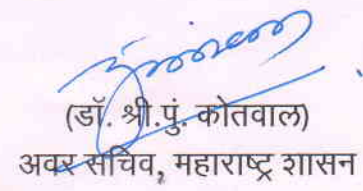 (डॉ. श्री.पुं. कोतवाल)
अवर सचिव, महाराष्ट्र शासन